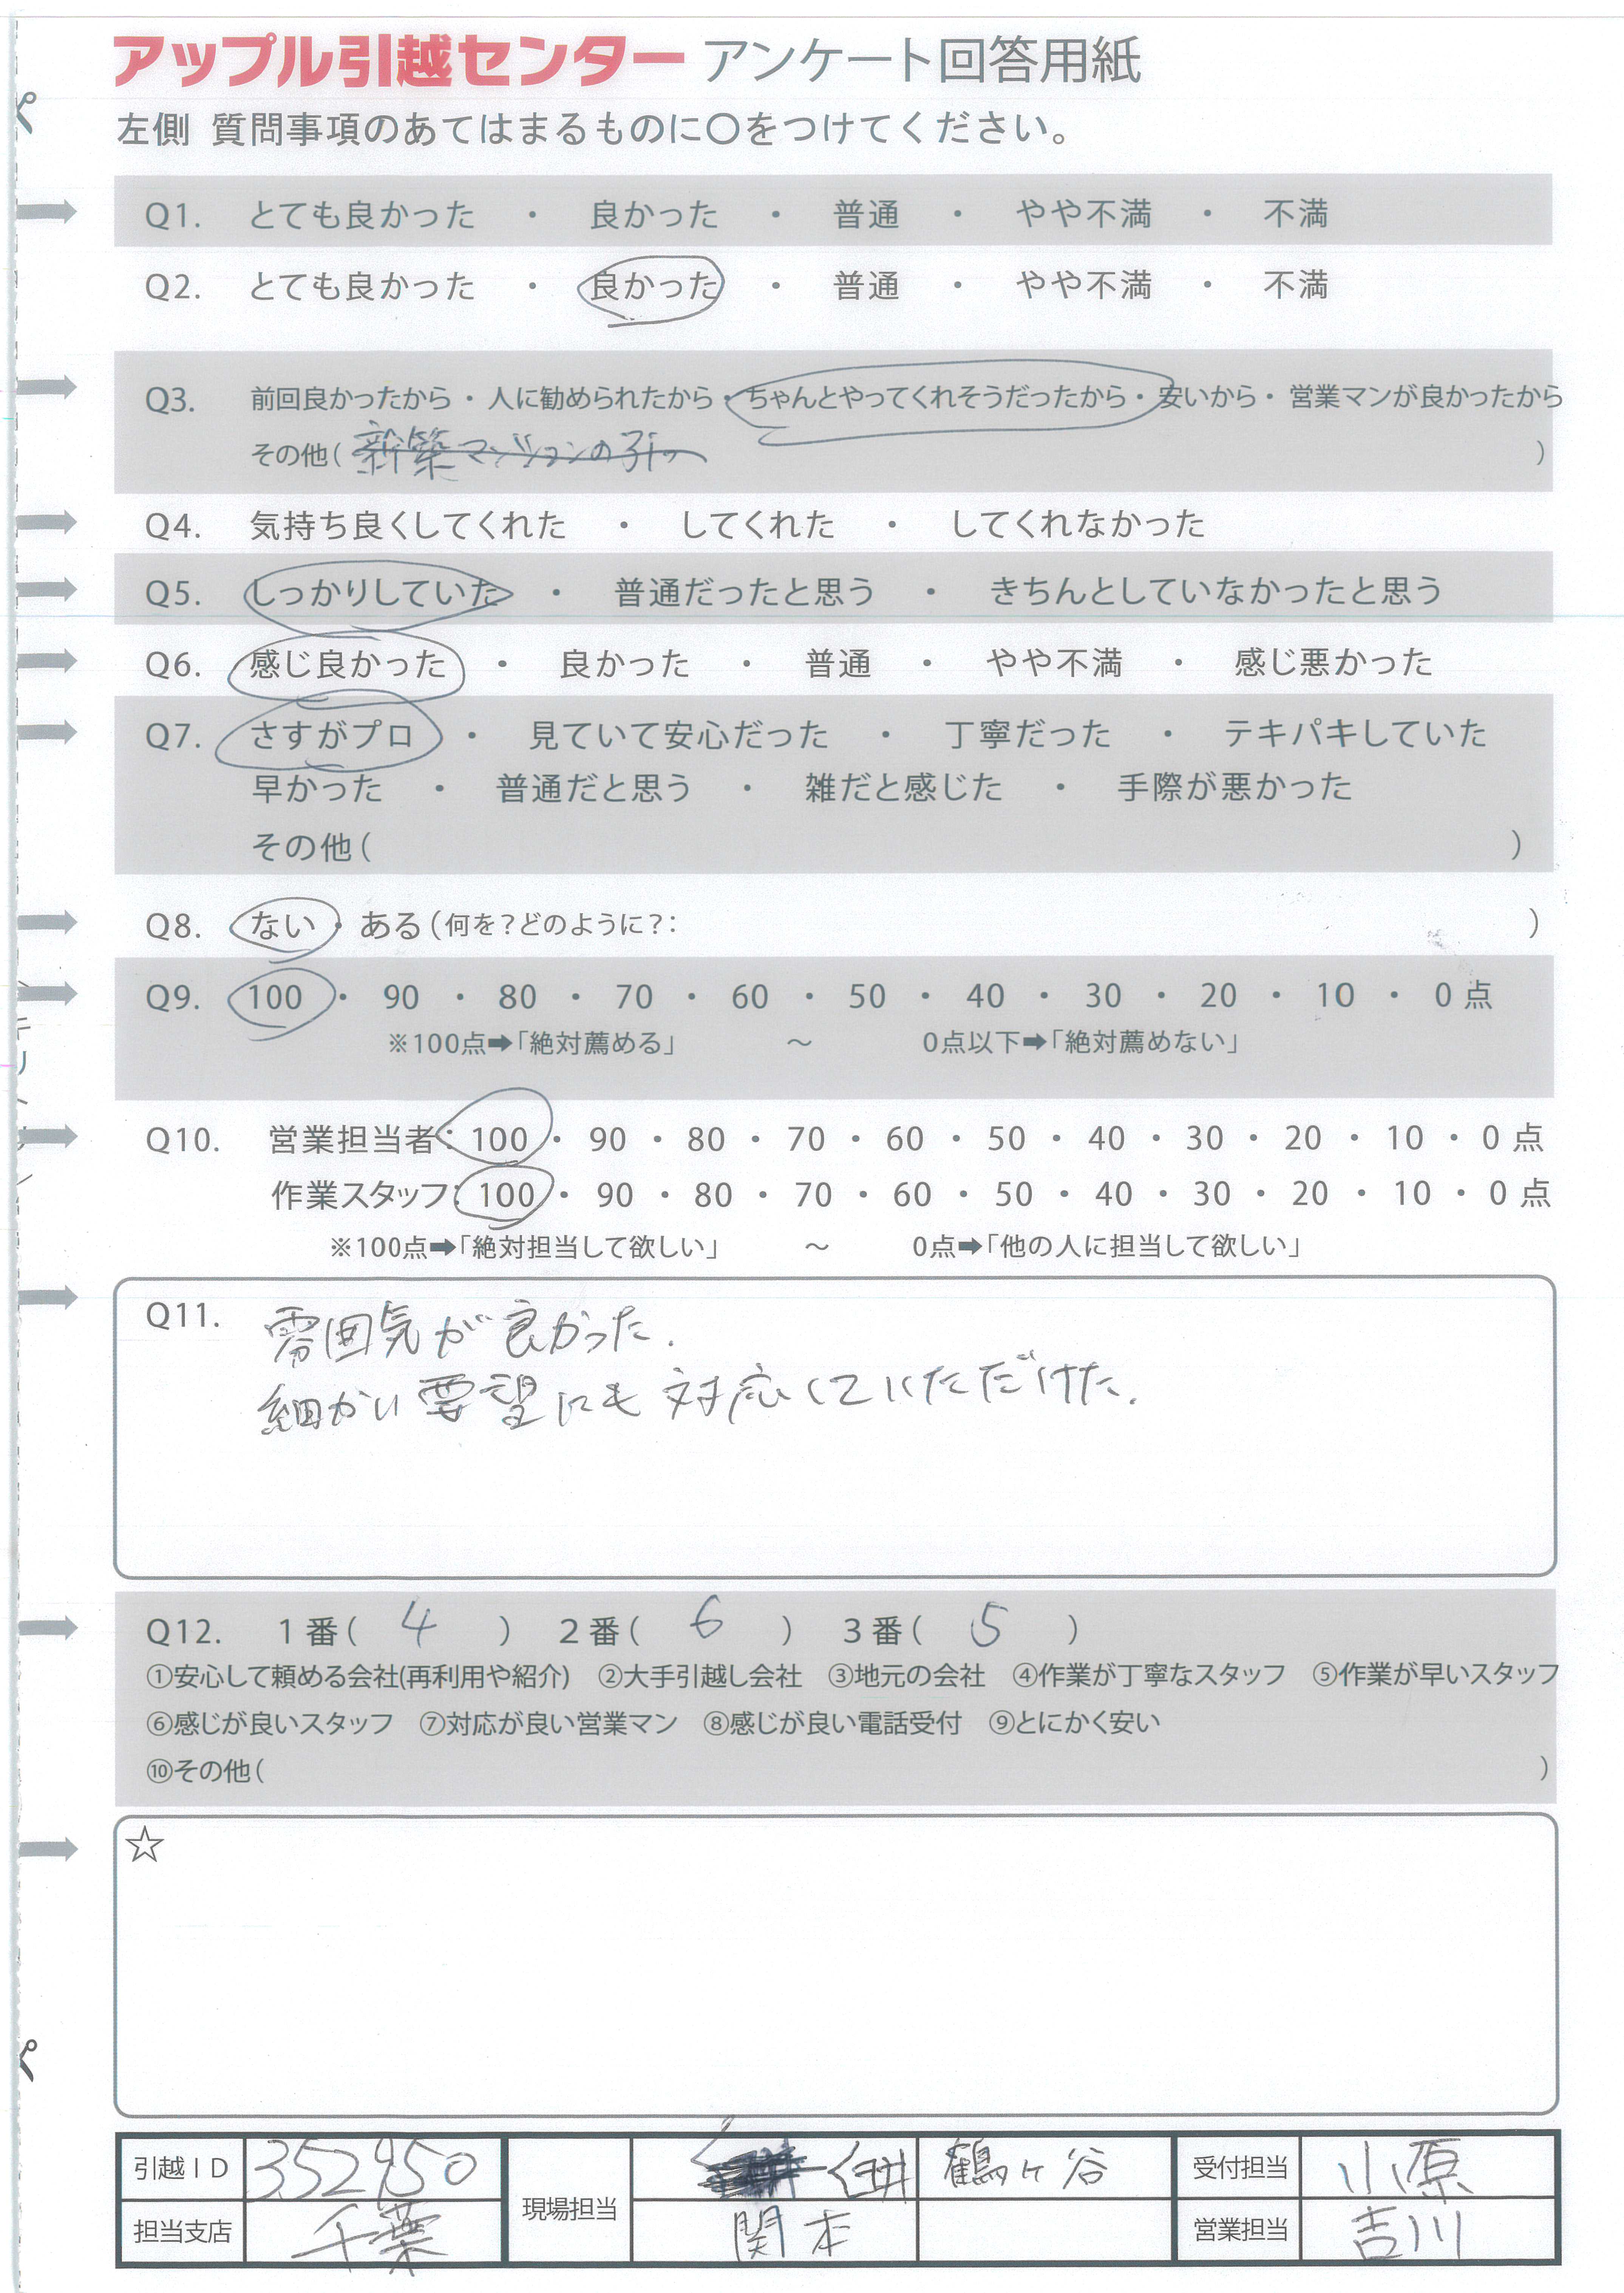 アップル引越センター アンケート回答用紙
左側 質問事項のあてはまるものに○をつけてください。
Q1. とても良かった ・ 良かった ・ 普通 ・ やや不満 ・ 不満
Q2. とても良かった ・ 良かった ・ 普通 ・ やや不満 ・ 不満
Q3. 前回良かったから・人に勧められたから・ちゃんとやってくれそうだったから・安いから・営業マンが良かったから
その他( 新築マンションの引っ )
Q4. 気持ち良くしてくれた ・ してくれた ・ してくれなかった
Q5. しっかりしていた ・ 普通だったと思う ・ きちんとしていなかったと思う
Q6. 感じ良かった ・ 良かった ・ 普通 ・ やや不満 ・ 感じ悪かった
Q7. さすがプロ ・ 見ていて安心だった ・ 丁寧だった ・ テキパキしていた
早かった ・ 普通だと思う ・ 雑だと感じた ・ 手際が悪かった
その他( )
Q8. ない・ある(何を?どのように?: )
Q9. 100 ・ 90 ・ 80 ・ 70 ・ 60 ・ 50 ・ 40 ・ 30 ・ 20 ・ 10 ・ 0 点
※100点➡「絶対薦める」 〜 0点以下➡「絶対薦めない」
Q10. 営業担当者:100 ・ 90 ・ 80 ・ 70 ・ 60 ・ 50 ・ 40 ・ 30 ・ 20 ・ 10 ・ 0 点
作業スタッフ:100 ・ 90 ・ 80 ・ 70 ・ 60 ・ 50 ・ 40 ・ 30 ・ 20 ・ 10 ・ 0 点
※100点➡「絶対担当して欲しい」 〜 0点➡「他の人に担当して欲しい」
Q11. 雰囲気が良かった.
細かい要望にも対応していただけた.
Q12. 1番( 4 ) 2番( 6 ) 3番( 5 )
①安心して頼める会社(再利用や紹介) ②大手引越し会社 ③地元の会社 ④作業が丁寧なスタッフ ⑤作業が早いスタッフ
⑥感じが良いスタッフ ⑦対応が良い営業マン ⑧感じが良い電話受付 ⑨とにかく安い
⑩その他( )
☆
引越ID 352950 現場担当 鶴ヶ谷 受付担当 小原
担当支店 千葉 関本 営業担当 吉川